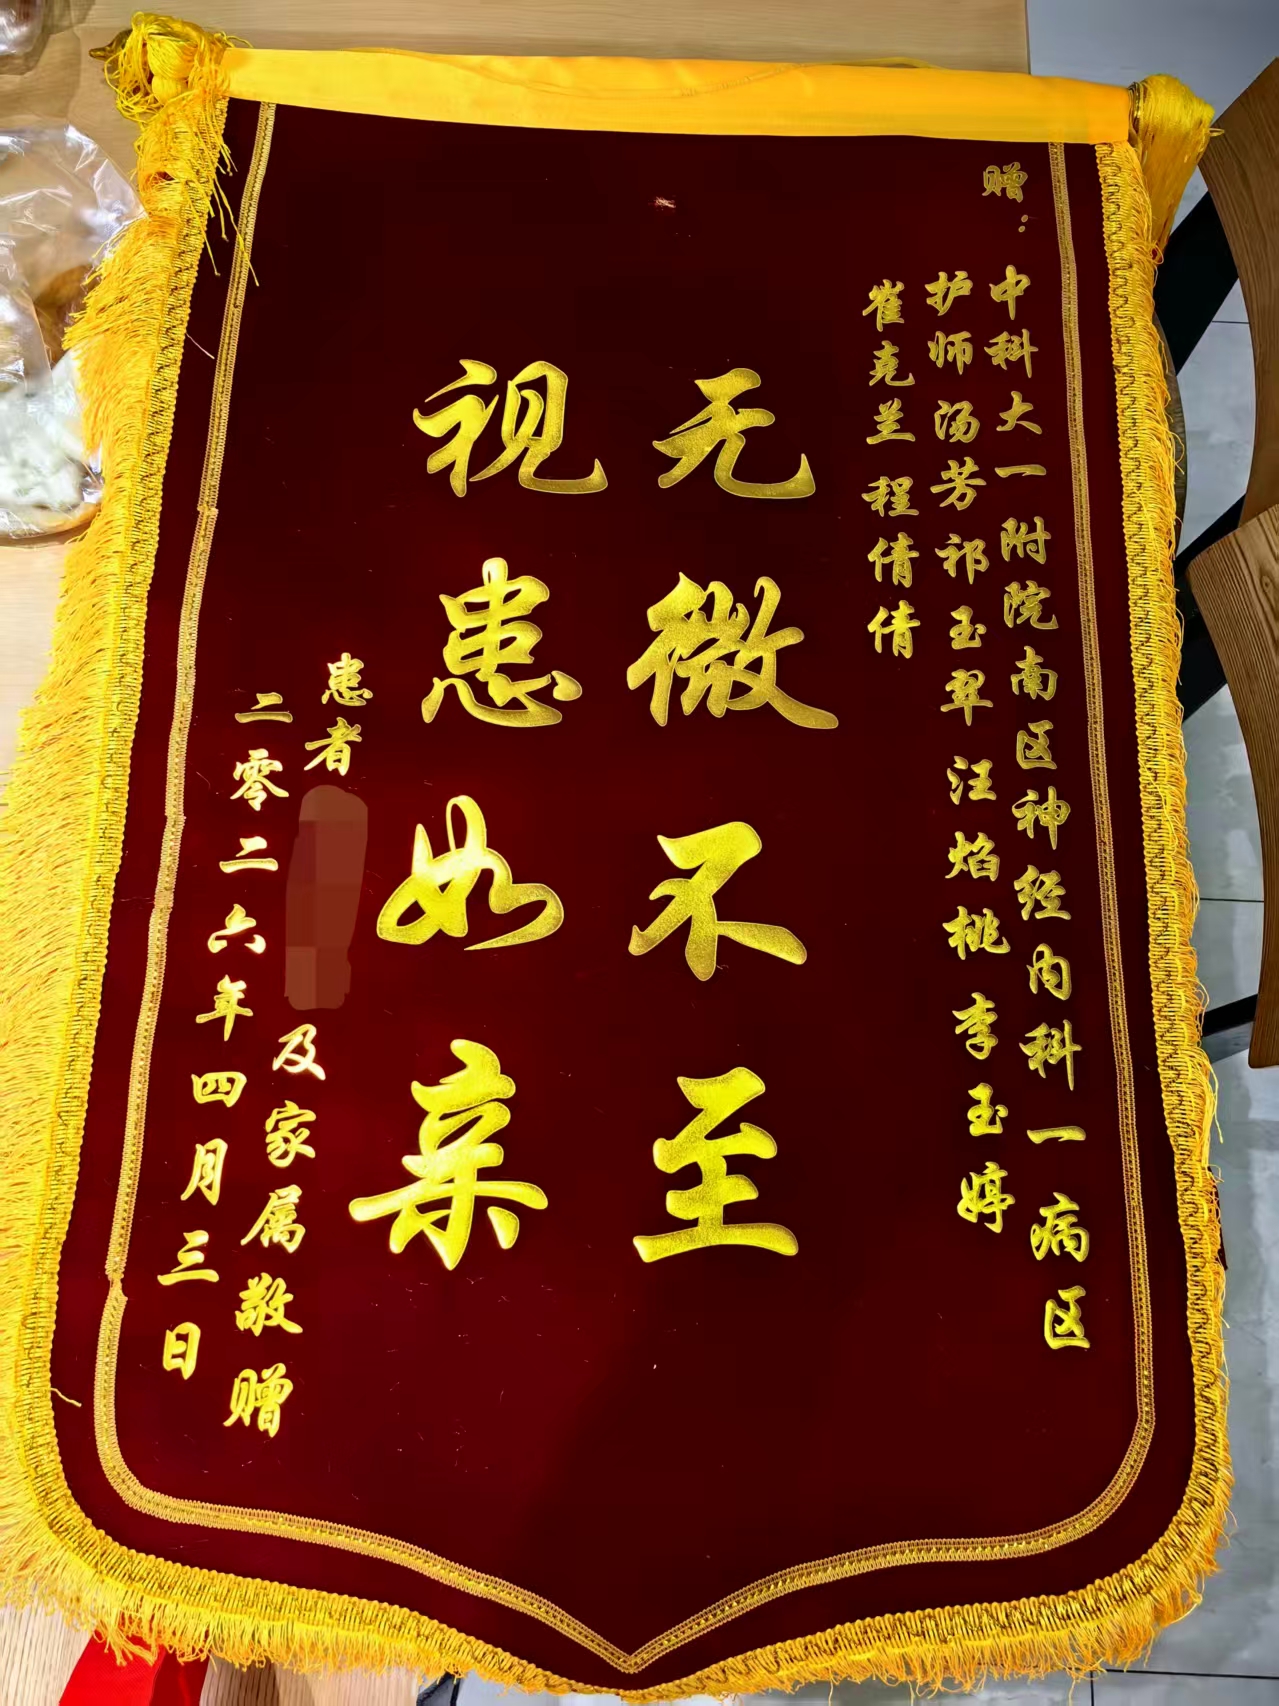 赠：
中科大一附院南区神经内科一病区
护师汤芳祁玉翠汪焰桃李玉婷
崔克兰程倩倩
无微不至
视患如亲
患者
及家属敬赠
二零二六年四月三日